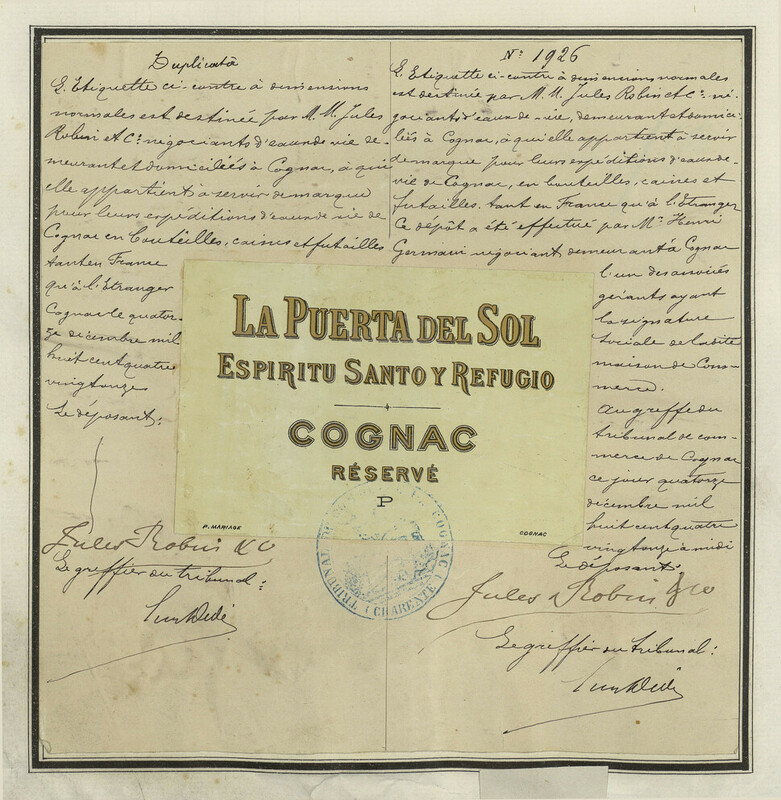 Duplicata
L'Etiquette ci-contre à dimensions
normales est destinée par M.M. Jules
Robin et Cº. négociants d'eaux de vie de-
meurant et domiciliés à Cognac, à qui
elle appartient à servir de marque
pour leurs expéditions d'eaux de vie de
Cognac en bouteilles, caisses et futailles
tant en France
qu'à l'Etranger
Cognac le quator-
ze décembre mil
huit cent quatre
vingt onze
Le déposant:
Jules Robin & Co
Le greffier du tribunal:
Nº 1926
L'Etiquette ci-contre à dimensions normales
est destinée par M.M. Jules Robin et Cº. né-
gociants d'eaux de-vie, demeurant et domici-
liés à Cognac, à qui elle appartient à servir
de marque pour leurs expéditions d'eaux de-
vie de Cognac, en bouteilles, caisses et
futailles, tant en France qu'à l'Etranger
Ce dépôt a été effectué par Mr. Henri
Germain négociant demeurant à Cognac
l'un des associés
gérants ayant
la signature
sociale de la dite
maison de Com-
merce.
Au greffe du
tribunal de com-
merce de Cognac
ce jour quatorze
décembre mil
huit cent quatre
vingt onze à midi
Le déposant:
Jules Robin & Co
Le greffier du tribunal:
LA PUERTA DEL SOL
ESPIRITU SANTO Y REFUGIO
COGNAC
RÉSERVÉ
P
P. MARIAGE
COGNAC
TRIBUNAL DE COGNAC (CHARENTE)